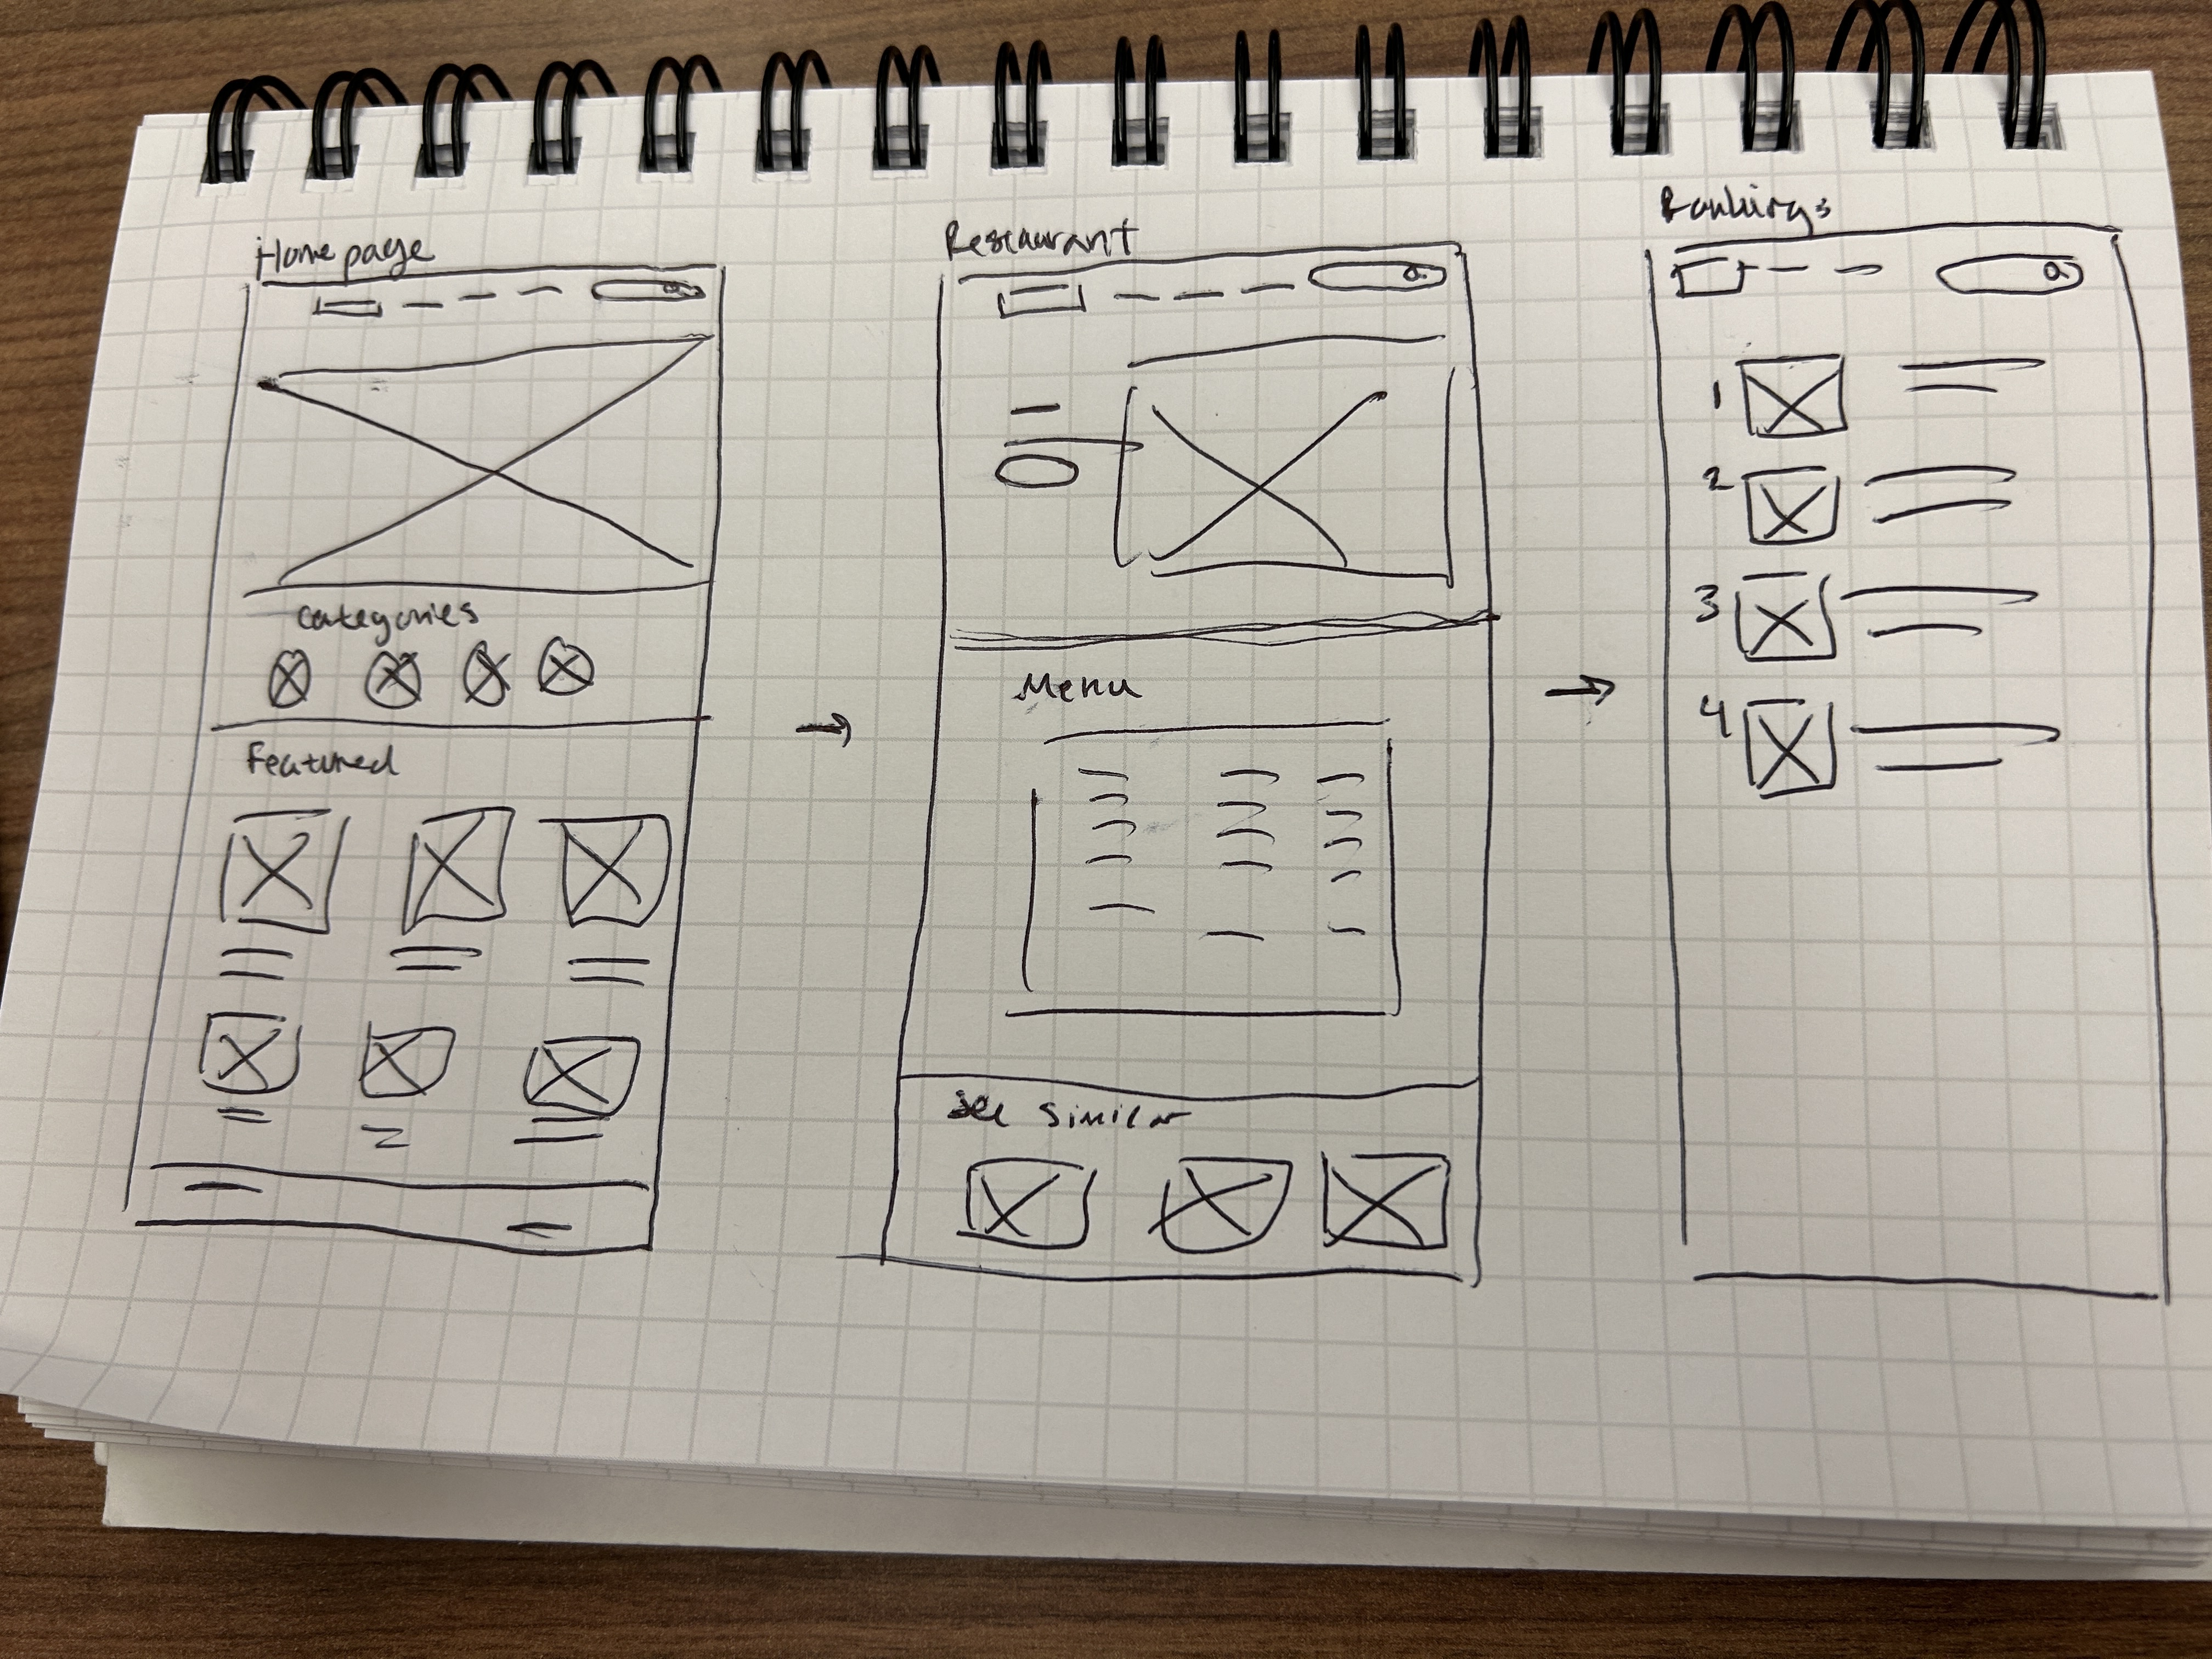 Home page
Categories
Featured
Restaurant
Menu
See Similar
Rankings
1
2
3
4